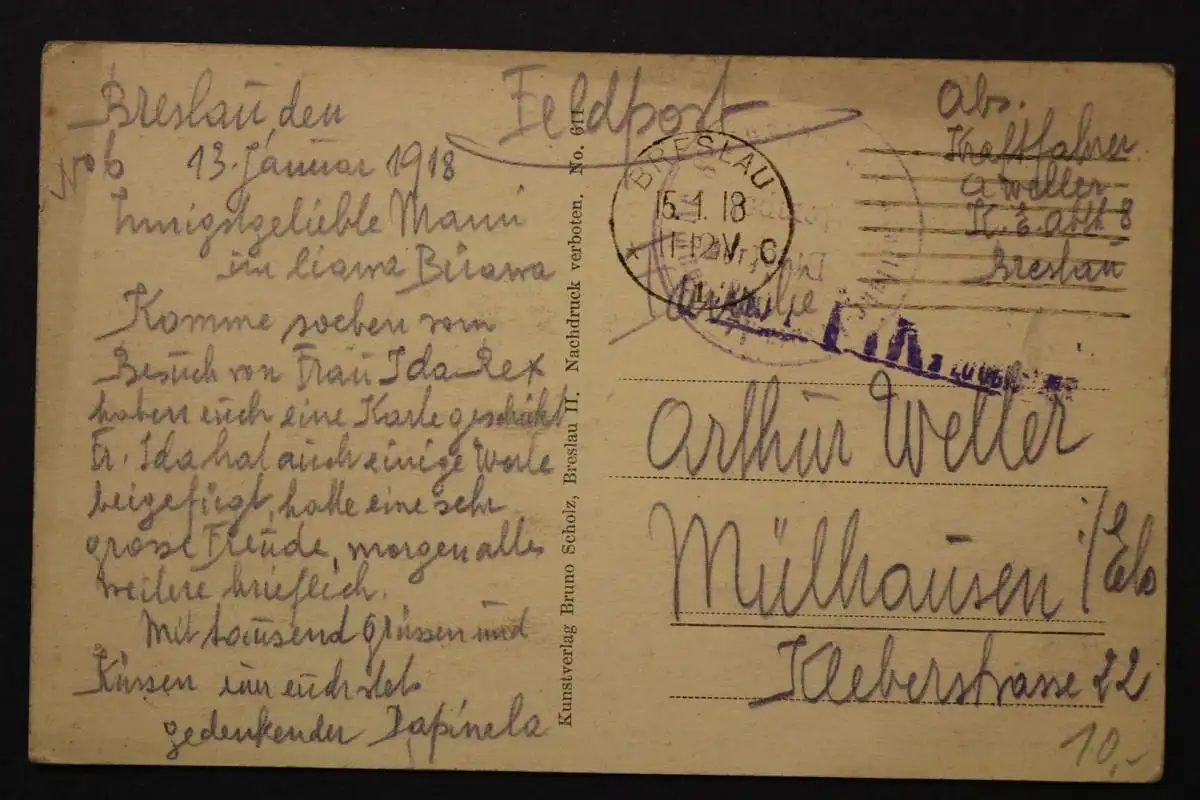 Breslau, den
No 6 13. Januar 1918
Innigstgeliebte Mami
Komme soeben vom
Besuch von Frau Ida Rex
haben euch eine Karte geschickt
Fr. Ida hat auch einige Worte
beigefügt, hatte eine sehr
grosse Freude, morgen alles
weitere brieflich.
Mit tausend Grüssen und
Küssen euer euch stets
gedenkender Papinela
Kunstverlag Bruno Scholz, Breslau II. Nachdruck verboten. No. 611
Feldpost
Abs.
Kraftfahrer
A Weller
K. E. Abt 8
Breslau
BRESLAU
15.1.18
11-12 V. C
Familie
Arthur Weller
Mülhausen i/Els
Kleberstrasse 22
10,-